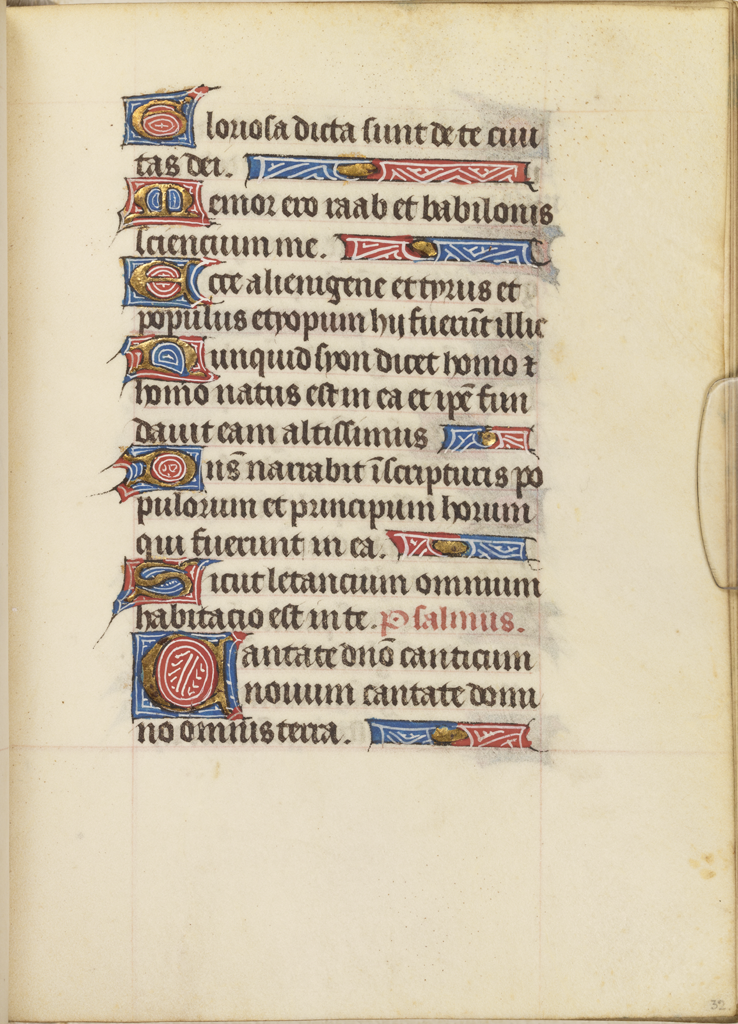 Gloriosa dicta sunt de te ciui
tas dei.
Memor ero raab et babilonis
sciencium me.
Ecce alienigene et tyrus et
populus etyopum hij fuerūt illic
Nunquid syon dicet homo ⁊
homo natus est in ea et ip̄e fun
dauit eam altissimus
Dn̄s narrabit ī scripturis po
pulorum et principum horum
qui fuerunt in ea.
Sicut letancium omnium
habitacio est in te. Psalmus.
Cantate dn̄o canticum
nouum cantate domi
no omnis terra.
32